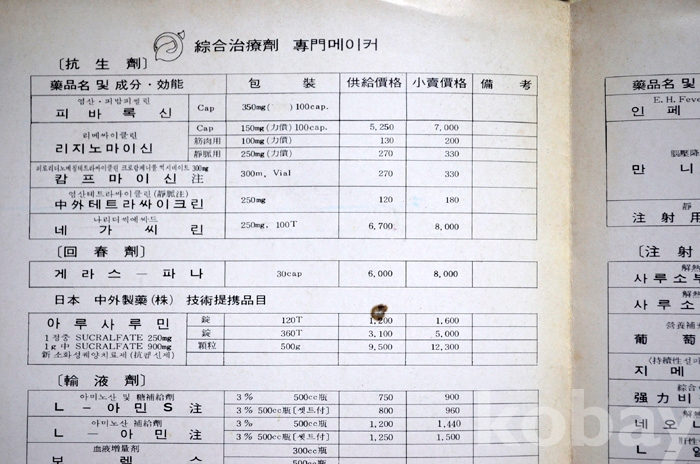 綜合治療劑 專門메이커
〔抗生劑〕
藥品名 및 成分·効能 包裝 供給價格 小賣價格 備考
염산·피밤피씰린
피바록신 Cap 350mg( ) 100cap.
리메싸이클린
리지노마이신 Cap 150mg(力價) 100cap. 5,250 7,000
筋肉用 100mg(力價) 130 200
靜脈用 250mg(力價) 270 330
300mg
캄프마이신 注 300m, Vial 270 330
염산테트라싸이클린(靜脈注)
中外테트라싸이크린 250mg 120 180
나리딕씩에씨드
네가씨린 250mg, 100T 6,700 8,000
〔回春劑〕
게라스－파나 30cap 6,000 8,000
日本 中外製藥(株) 技術提携品目
아루사루민 錠 120T 1,200 1,600
1錠중 SUCRALFATE 250mg 錠 360T 3,100 5,000
1g中 SUCRALFATE 900mg 顆粒 500g 9,500 12,300
新 소화성궤양치료제(抗펩신제)
〔輸液劑〕
아미노산 및 糖補給劑 3% 500cc瓶 750 900
L－아민S 注 3% 500cc瓶〔셋트付〕 800 960
아미노산 補給劑 3% 500cc瓶 1,200 1,440
L－아민 注 3% 500cc瓶〔셋트付〕 1,250 1,500
血液增量劑 300cc瓶
500cc瓶
藥品名 및
E. H. Feve
인페
腦壓降
만니
靜
注射用
〔注射
解熱
사루소부
解熱
사루소
營養補
葡萄
〈持續性설파
지메
綜合
强力비
解熱
네오
kobay